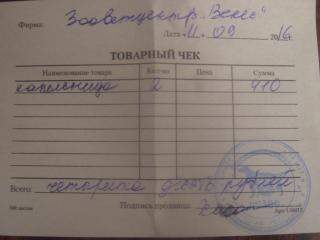 Фирма: Зооветцентр "Велес"
Дата 11. 09 2016
ТОВАРНЫЙ ЧЕК
Наименование товара Кол-во Цена Сумма
капельница 2 410
Всего: четыреста десять рублей
Подпись продавца:
100 листов